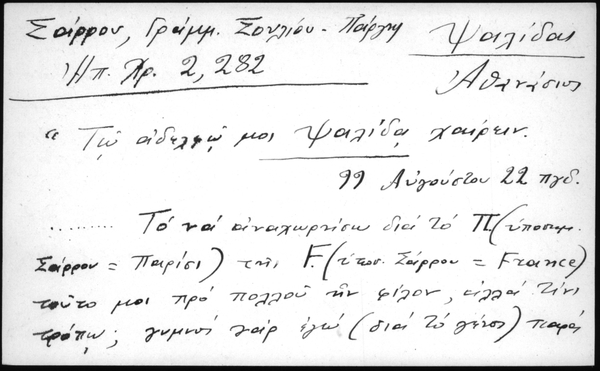 Σάρρου, Γράμμ. Σουλίου - Πάργης
Ψαλίδας
Ἠπ. Χρ. 2, 282
Ἀθανάσιος
" Τῷ ἀδελφῷ μοι Ψαλίδᾳ χαίρειν.
99 Αὐγούστου 22 πγδ.
......... Τό νά ἀναχωρήσω διά τό Π (ὑποσημ.
Σάρρου = Παρίσι) τῆς F. (ὑποσ. Σάρρου = France)
τοῦτο μοι πρό πολλοῦ ἦν φίλον, ἀλλά τίνι
τρόπῳ; γυμνός γάρ ἐγώ (διά τό γένος) παρά